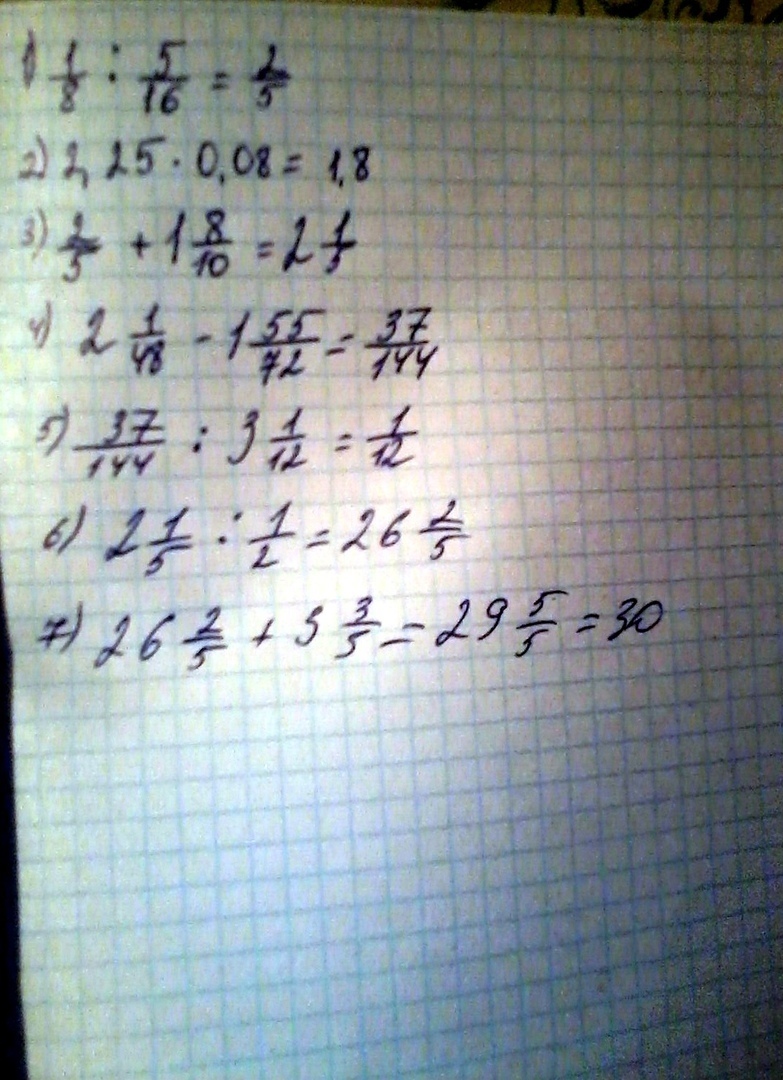 1) 1/8 : 5/16 = 2/5
2) 2,25 · 0,08 = 1,8
3) 2/5 + 1 8/10 = 2 1/5
4) 2 1/48 - 1 55/72 = 37/144
5) 37/144 : 3 1/12 = 1/12
6) 2 1/5 : 1/2 = 26 2/5
7) 26 2/5 + 3 3/5 = 29 5/5 = 30